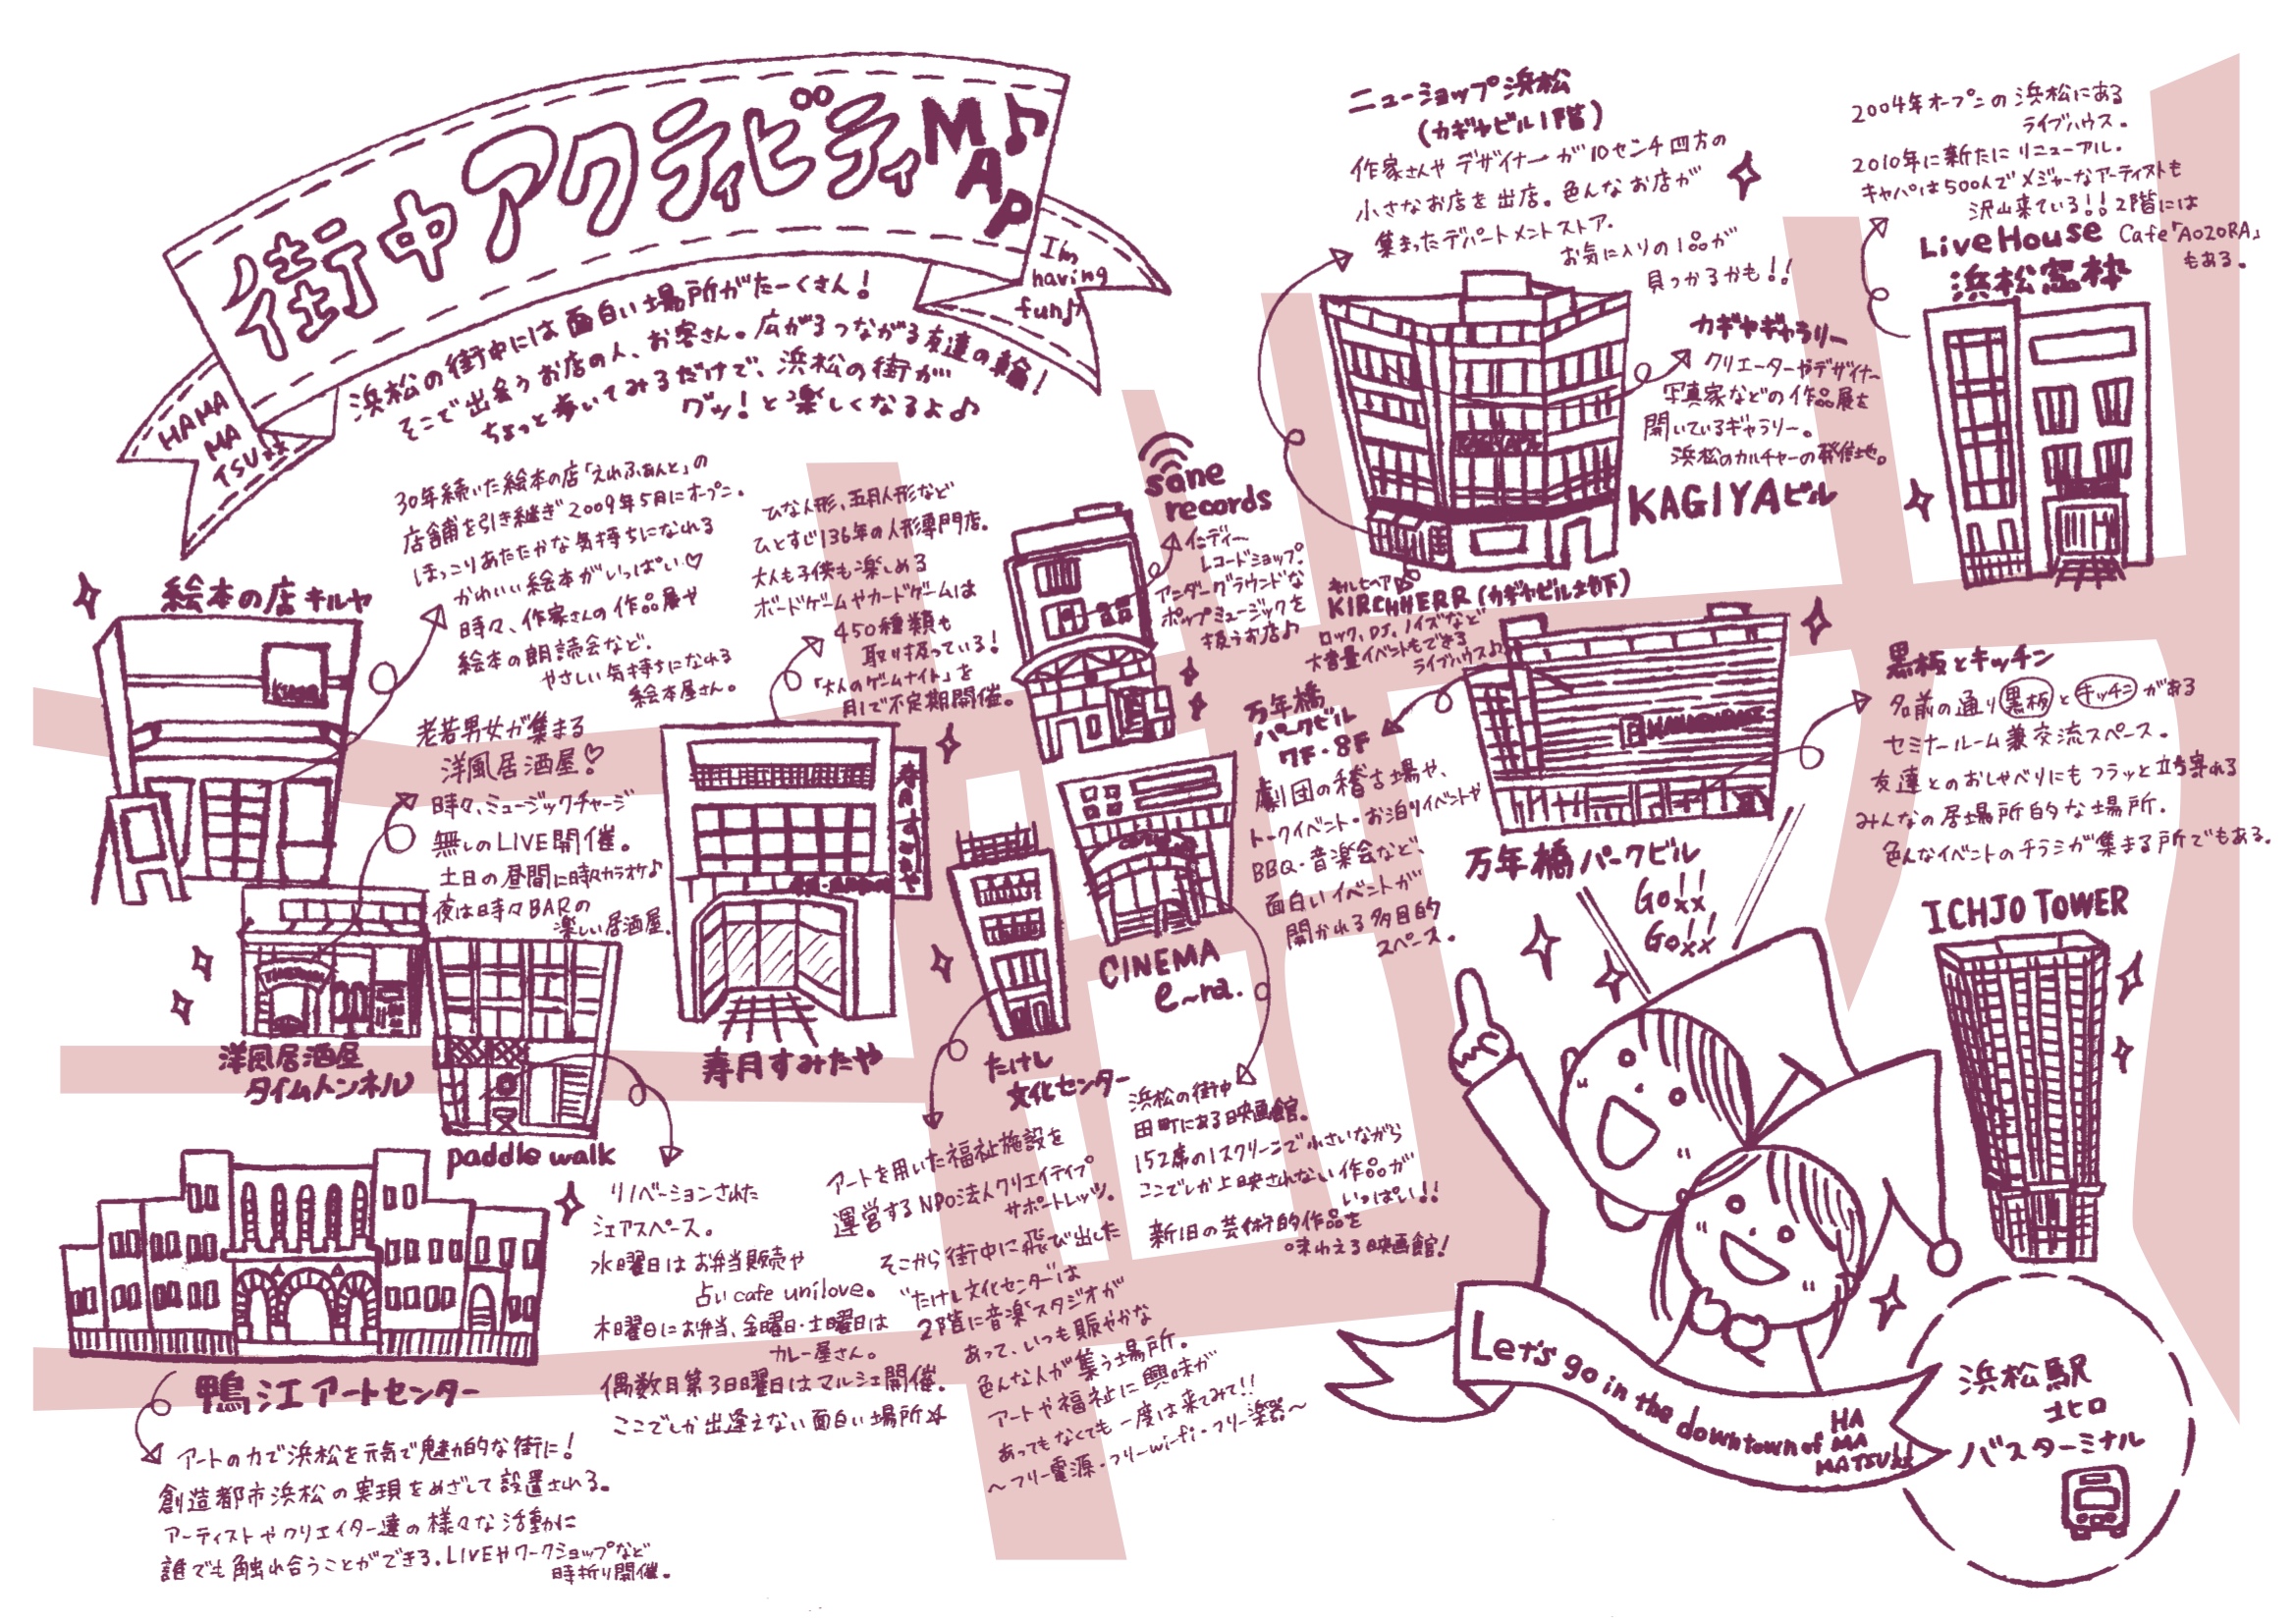 街中アクティビティMAP♪
I'm
having
fun♪
HAMA
MA
TSU
浜松の街中には面白い場所がたーくさん!
そこで出会うお店の人、お客さん。広がるつながる友達の輪!
ちょっと歩いてみるだけで、浜松の街が
グッ!と楽しくなるよ♪
30年続いた絵本の店「えれふぁんと」の
店舗を引き継ぎ2009年5月にオープン。
ほっこりあたたかな気持ちになれる
かわいい絵本がいっぱい♡
時々、作家さんの作品展や
絵本の朗読会など.
やさしい気持ちになれる
絵本屋さん。
絵本の店キルヤ
ひな人形、五月人形など
ひとすじ136年の人形専門店。
大人も子供も楽しめる
ボードゲームやカードゲームは
450種類も
取り扱っている!
「大人のゲームナイト」を
月1で不定期開催。
寿月すみたや
老若男女が集まる
洋風居酒屋♡
時々、ミュージックチャージ
無しのLIVE開催。
土日の昼間に時々カラオケ♪
夜は時々BARの
楽しい居酒屋.
洋風居酒屋
タイムトンネル
paddle walk
リノベーションされた
シェアスペース。
水曜日はお弁当販売や
占いcafe unilove。
木曜日にお弁当、金曜日・土曜日は
カレー屋さん。
偶数月第3日曜日はマルシェ開催.
ここでしか出逢えない面白い場所☆
鴨江アートセンター
アートの力で浜松を元気で魅力的な街に!
創造都市浜松の実現をめざして設置される。
アーティストやクリエイター達の様々な活動に
誰でも触れ合うことができる.LIVEやワークショップなど
時折り開催。
sone
records
インディー
レコードショップ.
アンダーグラウンドな
ポップミュージックを
扱うお店♪
たけし
文化センター
アートを用いた福祉施設を
運営するNPO法人クリエイティブ
サポートレッツ。
そこから街中に飛び出した
"たけし文化センター"は
2階に音楽スタジオが
あって、いつも賑やかな
色んな人が集う場所。
アートや福祉に興味が
あってもなくても一度は来てみて!!
〜フリー電源・フリーwi-fi・フリー楽器〜
CINEMA
e~ra.
浜松の街中
田町にある映画館.
152席の1スクリーンで小さいながら
ここでしか上映されない作品が
いっぱい!!
新旧の芸術的作品を
味わえる映画館!
ニューショップ浜松
(カギヤビル1階)
作家さんやデザイナーが10センチ四方の
小さなお店を出店。色んなお店が
集まったデパートメントストア.
お気に入りの1品が
見つかるかも!!
カギヤギャラリー
クリエーターやデザイナー
写真家などの作品展を
開いているギャラリー。
浜松のカルチャーの発信地。
KAGIYAビル
キルヒヘア
KIRCHHERR(カギヤビル地下)
ロック、DJ、ノイズなど
大音量イベントもできる
ライブハウス♪
2004年オープンの浜松にある
ライブハウス。
2010年に新たにリニューアル.
キャパは500人でメジャーなアーティストも
沢山来ている!!2階には
Cafe「AOZORA」
もある。
LiveHouse
浜松窓枠
万年橋
パークビル
7F・8F
劇団の稽古場や、
トークイベント・お泊りイベントや
BBQ・音楽会など、
面白いイベントが
開かれる多目的
スペース。
万年橋パークビル
黒板とキッチン
名前の通り黒板とキッチンがある
セミナールーム兼交流スペース。
友達とのおしゃべりにもフラッと立ち寄れる
みんなの居場所的な場所.
色んなイベントのチラシが集まる所でもある.
Go!!
Go!!
ICHJO TOWER
Let's go in the downtown of HA
MA
MATSU!!
浜松駅
北口
バスターミナル